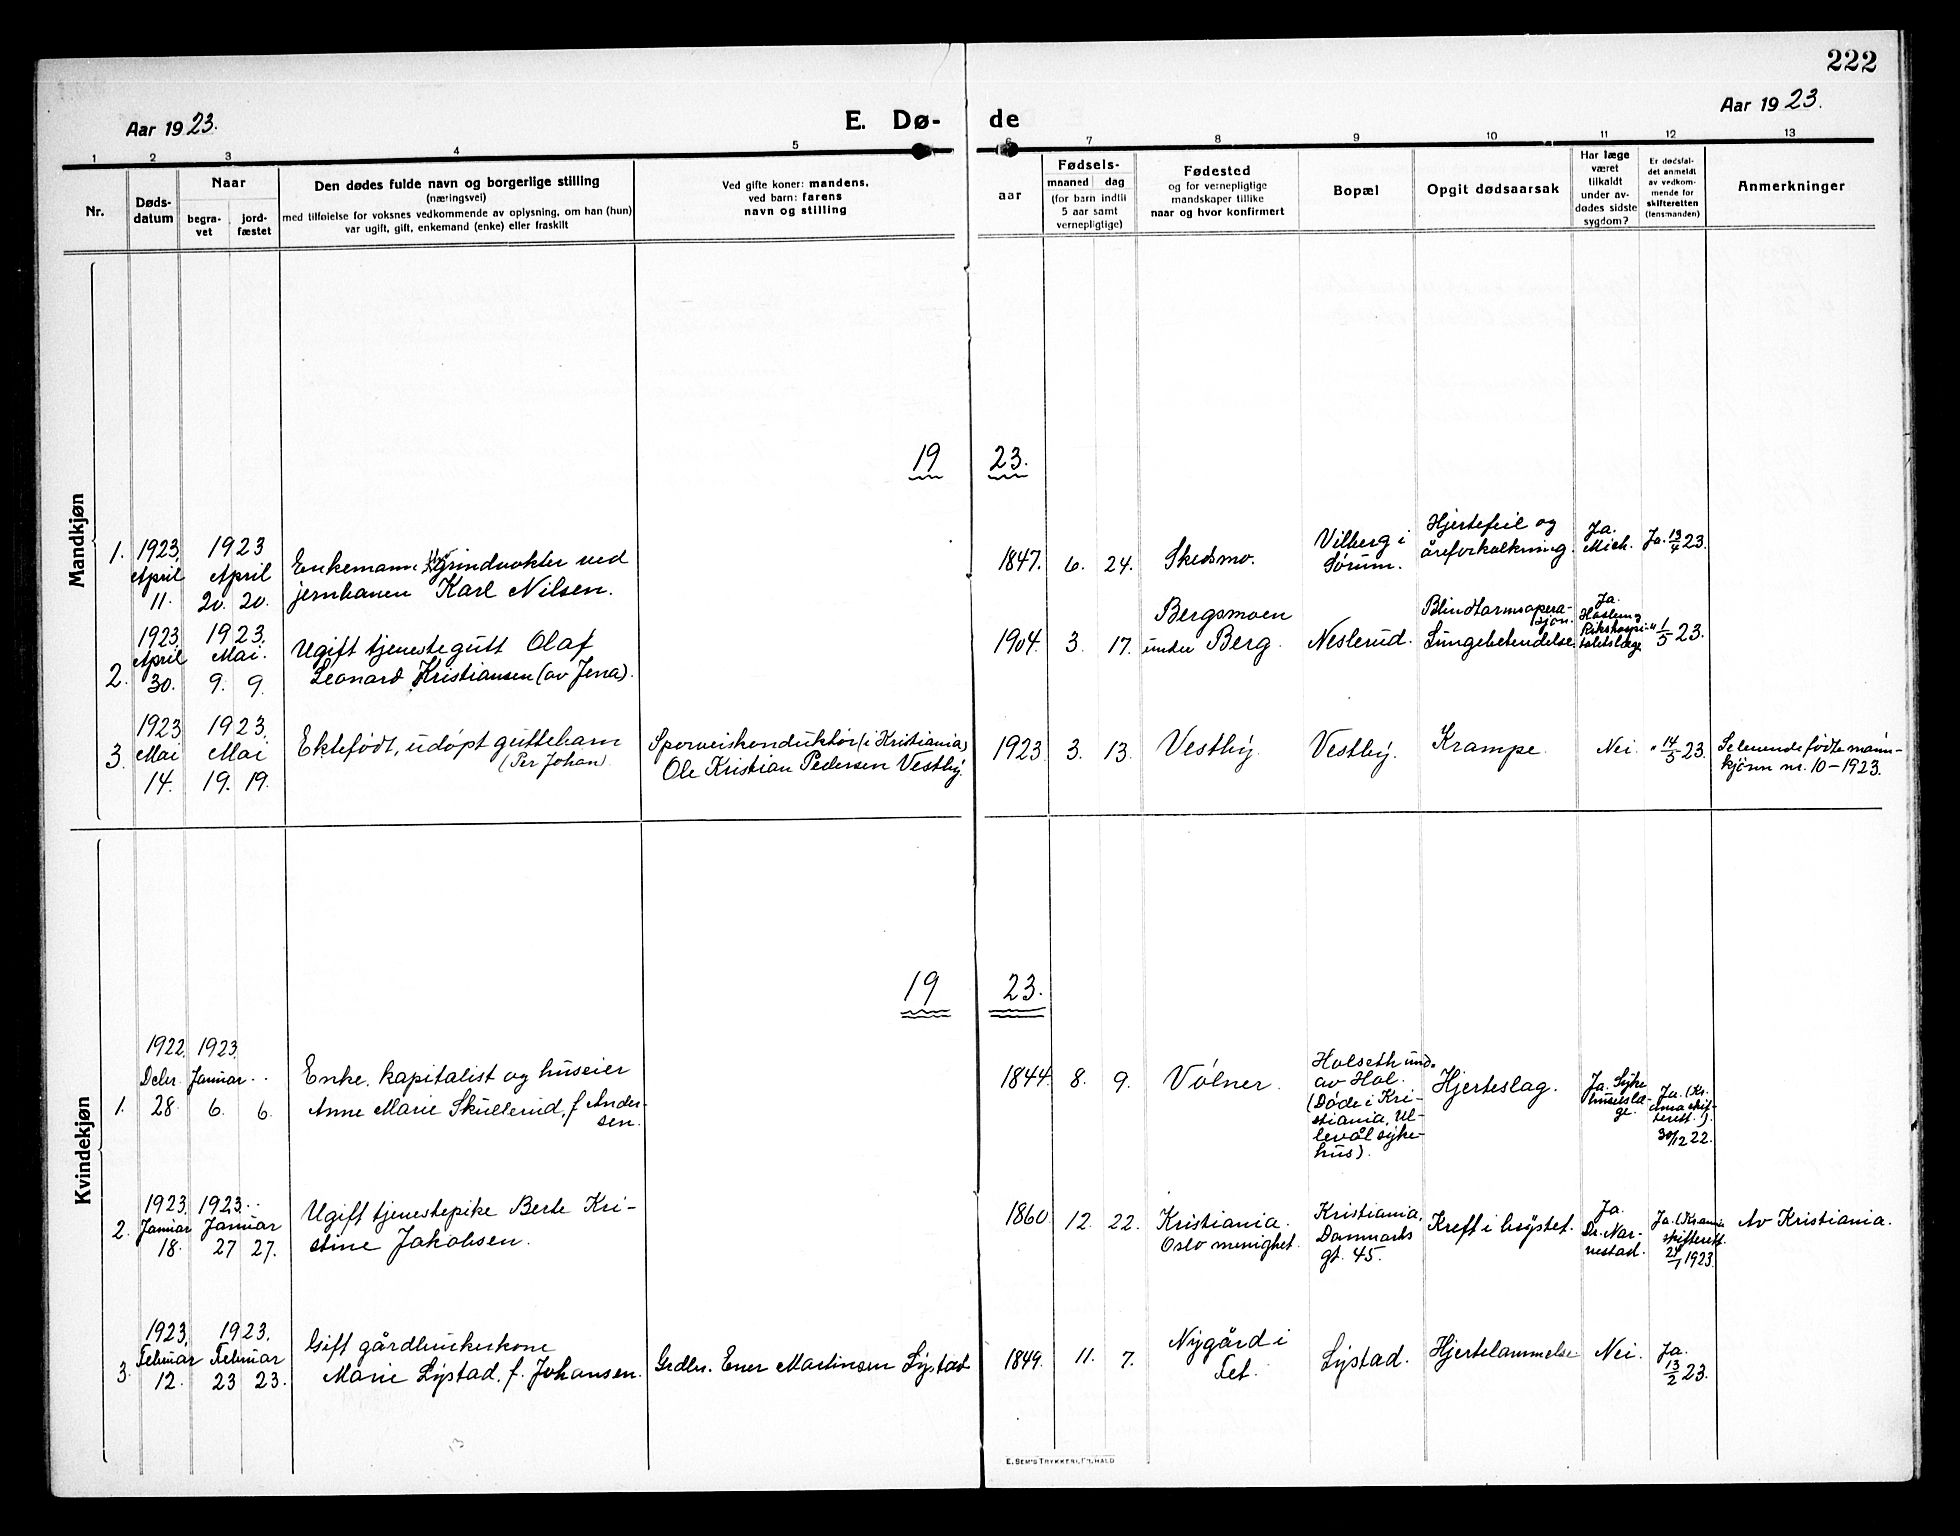 222
Aar 1923.
E. Dø-
de
Aar 1923.
1 2 3 4 5 6 7 8 9 10 11 12 13
Nr.
Døds-
datum
Naar
begra-
vet
jord-
fæstet
Den dødes fulde navn og borgerlige stilling
(næringsvei)
med tilføielse for voksnes vedkommende av oplysning, om han (hun)
var ugift, gift, enkemand (enke) eller fraskilt
Ved gifte koner: mandens,
ved barn: farens
navn og stilling
Fødsels-
aar
maaned dag
(for barn indtil
5 aar samt
vernepligtige)
Fødested
og for vernepligtige
mandskaper tillike
naar og hvor konfirmert
Bopæl
Opgit dødsaarsak
Har læge
været
tilkaldt
under av-
dødes sidste
sygdom?
Er dødsfal-
det anmeldt
av vedkom-
mende for
skifteretten
(lensmanden)
Anmerkninger
Mandkjøn
19 23.
1.
1923
April
11.
1923
April
20. 20.
Enkemann. Grindvokter ved
jernbanen Karl Nilsen.
1847. 6. 24.
Skedsmo.
Vilberg i
Sørum.
Hjertefeil og
åreforkalkning.
Ja.
Mich.
Ja. 13/4 23.
2.
1923.
April
30.
1923.
Mai.
9. 9.
Ugift tjenestegutt Olaf
Leonard Kristiansen (av Jena).
1904. 3. 17.
Bergsmoen
under Berg.
Neslerud.
Blindtarmsopera-
sjon.
Lungebetendelse.
Ja.
Rikshospi-
talslæge
" 1/5 23.
3.
1923
Mai
14.
1923.
Mai
19. 19.
Ektefødt, udøpt guttebarn
(Per Johan)
Sporveiskonduktør (i Kristiania)
Ole Kristian Pedersen Vestby.
1923. 3. 13.
Vestby.
Vestby.
Krampe.
Nei.
" 14/5 23.
Se levende fødte mann-
kjønn nr. 10 - 1923.
Kvindekjøn
19 23.
1.
1922.
Debr.
28.
1923.
Januar
6. 6.
Enke, kapitalist og huseier
Anne Marie Skullerud, f. Ander-
sen.
1844. 8. 9.
Vølner.
Holseth und.
av Hol.
(Døde i Kri-
stiania, Ul-
levål syke-
hus).
Hjerteslag.
Ja. Syke
huseslæ-
ge.
Ja. (Kr.
ania skif-
terett.).
30/12 22.
2.
1923.
Januar
18.
1923.
Januar
27 27.
Ugift tjenestepike Berte Kri-
stine Jakobsen.
1860. 12. 22.
Kristiania.
Oslo menighet.
Kristiania,
Danmarks
gt. 45.
Kreft i brystet.
Ja.
Dr. Nar-
nestad.
Ja. (Kr.ania
skifterett.
24/1 1923.
Av Kristiania.
3.
1923.
Februar
12.
1923.
Februar
23 23.
Gift gårdbrukerkone
Marie Lystad, f. Johansen.
Grdbr. Ener Martinsen Lystad
1849. 11. 7.
Nygård i
Fet.
Lystad.
Hjertelammelse
Nei.
Ja.
13/2 23.
E. SEM'S TRYKKERI, FR.HALD